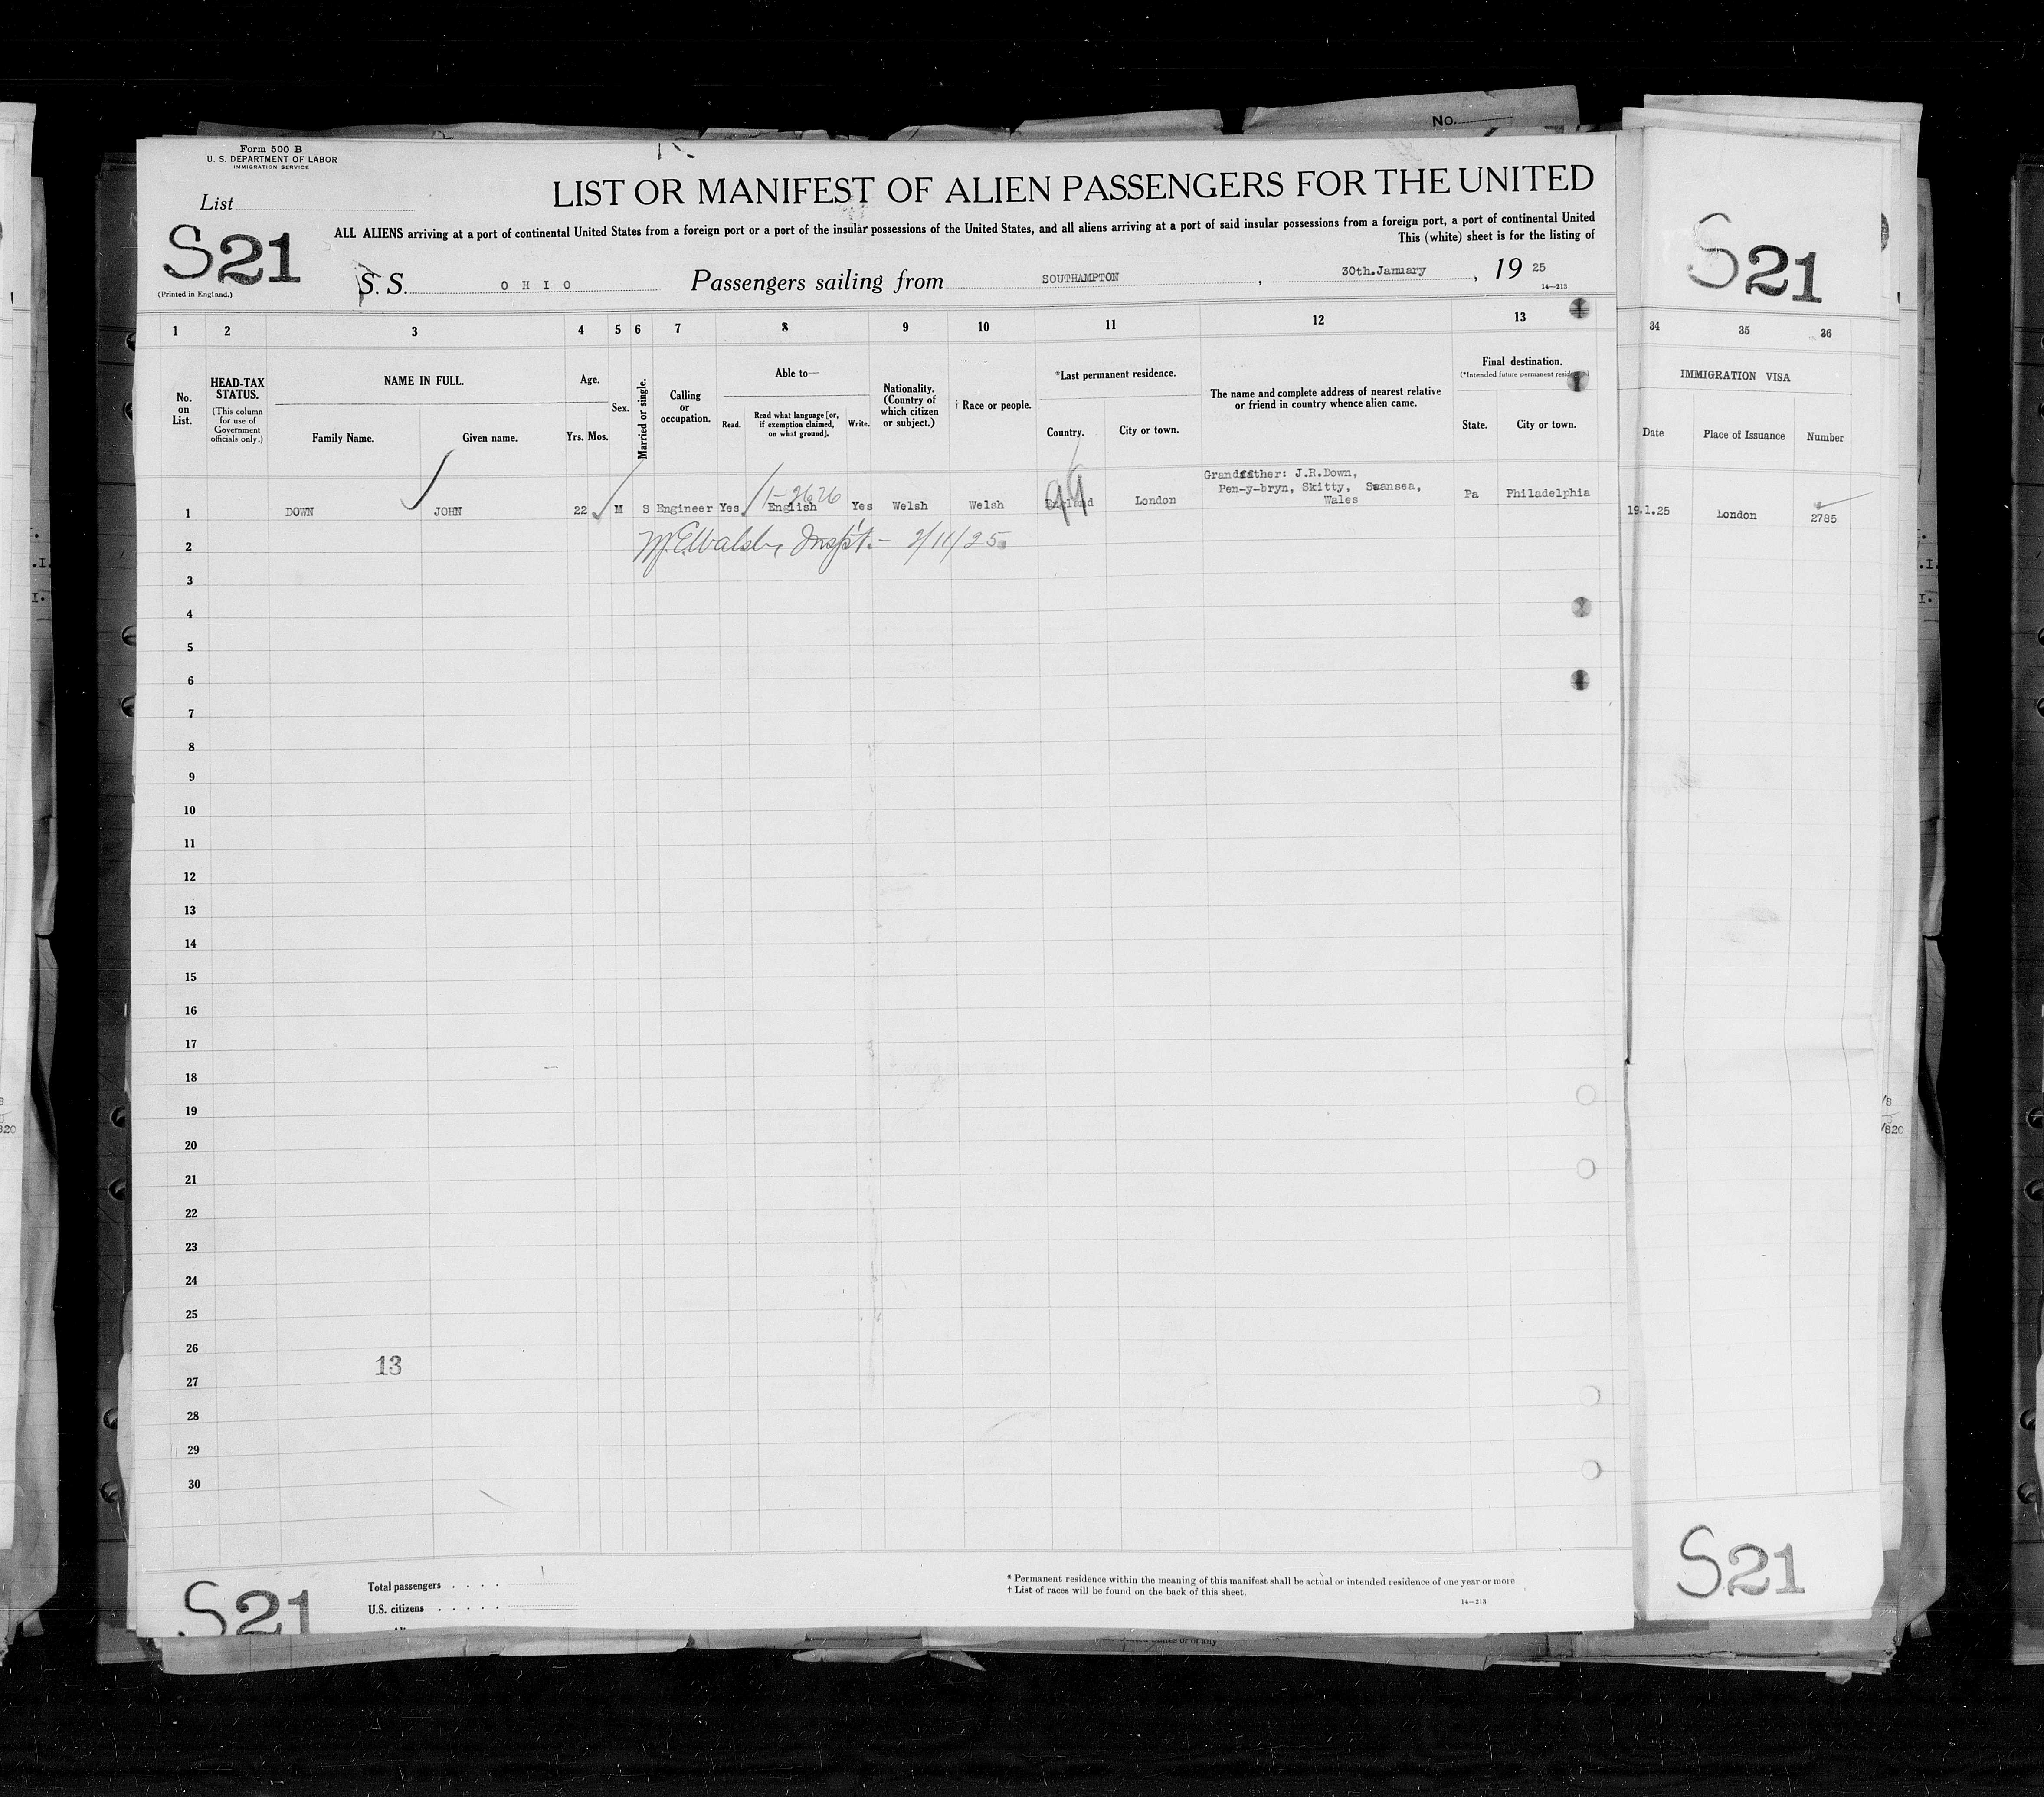 No.
Form 500 B
U. S. DEPARTMENT OF LABOR
IMMIGRATION SERVICE
List
LIST OR MANIFEST OF ALIEN PASSENGERS FOR THE UNITED
S21
ALL ALIENS arriving at a port of continental United States from a foreign port or a port of the insular possessions of the United States, and all aliens arriving at a port of said insular possessions from a foreign port, a port of continental United
This (white) sheet is for the listing of
(Printed in England.)
S. S. OHIO Passengers sailing from SOUTHAMPTON, 30th.January, 19 25
14—213
S21
1 2 3 4 5 6 7 8 9 10 11 12 13 34 35 36
No. on List.
HEAD-TAX STATUS.
(This column for use of Government officials only.)
NAME IN FULL.
Family Name. Given name.
Age.
Yrs. Mos.
Sex.
Married or single.
Calling or occupation.
Able to—
Read. Read what language [or, if exemption claimed, on what ground]. Write.
Nationality. (Country of which citizen or subject.)
† Race or people.
*Last permanent residence.
Country. City or town.
The name and complete address of nearest relative or friend in country whence alien came.
Final destination.
(*Intended future permanent residence)
State. City or town.
IMMIGRATION VISA
Date Place of Issuance Number
Grandfather: J.R.Down,
Pen-y-bryn, Skitty, Swansea,
Wales
1-2626
99
1 DOWN JOHN 22 M S Engineer Yes English Yes Welsh Welsh England London Pa Philadelphia 19.1.25 London 2785
2 Inspt.- 2/11/25
3
4
5
6
7
8
9
10
11
12
13
14
15
16
17
18
19
20
21
22
23
24
25
26
13
27
28
29
30
S21
Total passengers . . . . 1
U.S. citizens . . . . .
* Permanent residence within the meaning of this manifest shall be actual or intended residence of one year or more
† List of races will be found on the back of this sheet.
14—213
S21